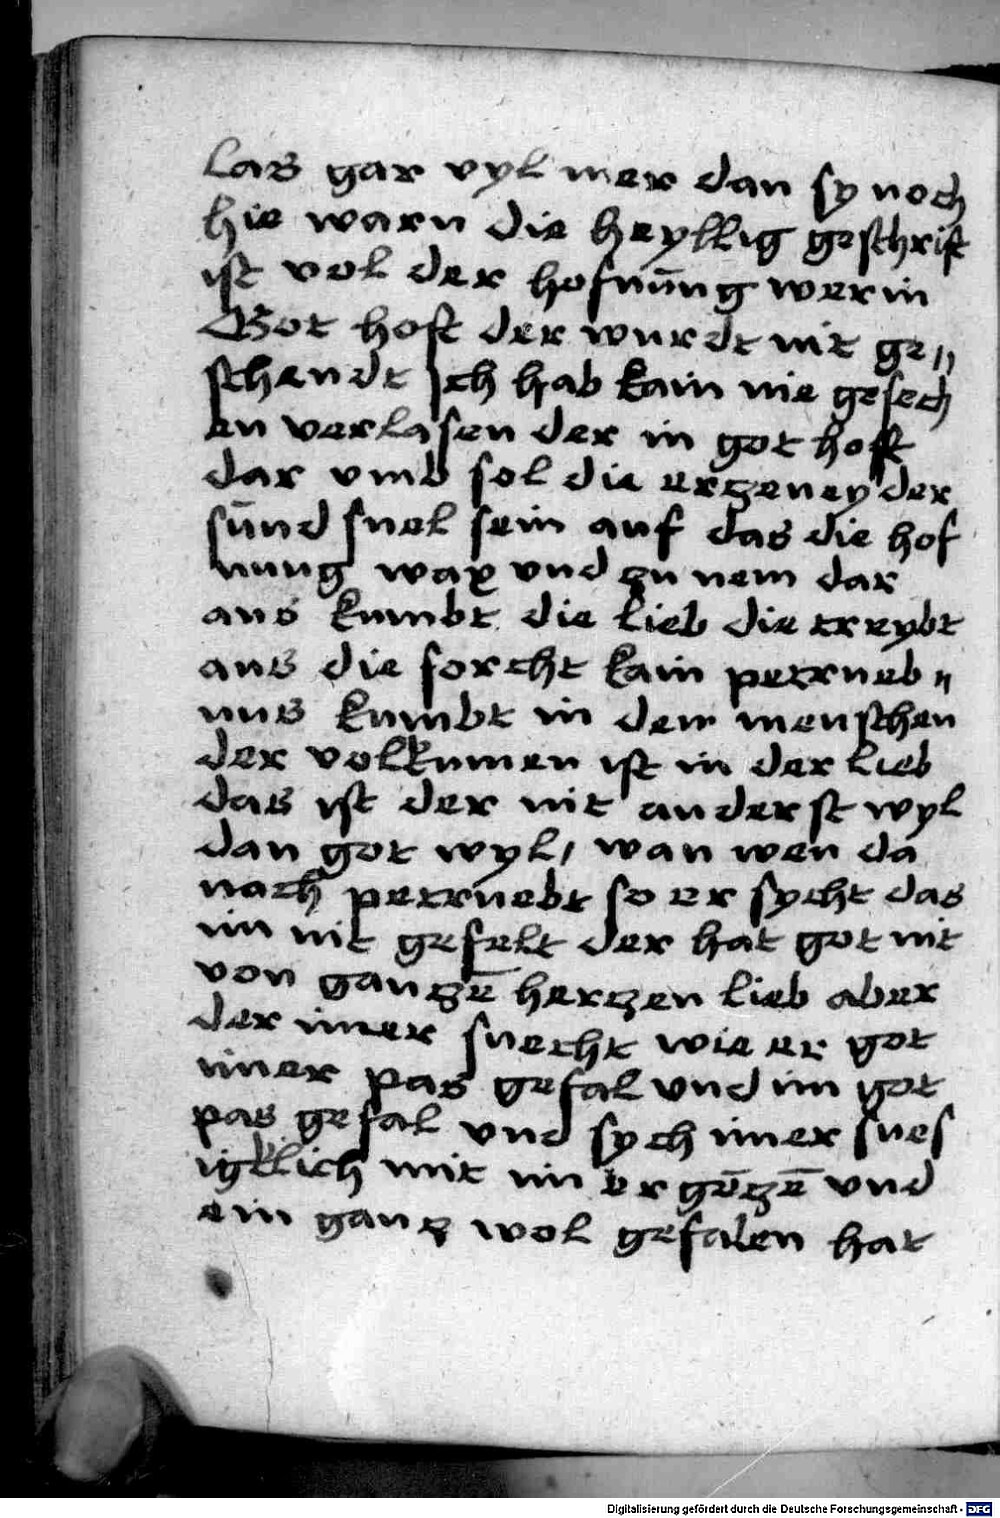 las gar vyl mer dan sy noch
hie warn die heyllig geschrift
ist vol der hofnūng wer in
Got hoft der wurdt nit ge〃
schendt Ich hab kain nie gesech
en verlasen der in got hoft
dar vmb sol die erzeney der
sūnd snel sein auf das die hof
nung wax vnd zu nem dar
aus kumbt die lieb die treybt
aus die forcht kain petrueb〃
nus kumbt in dem menschen
der volkumen ist in der lieb
das ist der nit anderst wyl
dan got wyl / wan wen da
nach petruebt so er sycht das
im nit gefelt der hat got nit
von ganczē herczen lieb aber
der imer suecht wie er got
imer pas gefal vnd im got
pas gefal vnd sych imer sues
igklich mit im ergēczē vnd
ein gancz wol gefalen hat
Digitalisierung gefördert durch die Deutsche Forschungsgemeinschaft - DFG